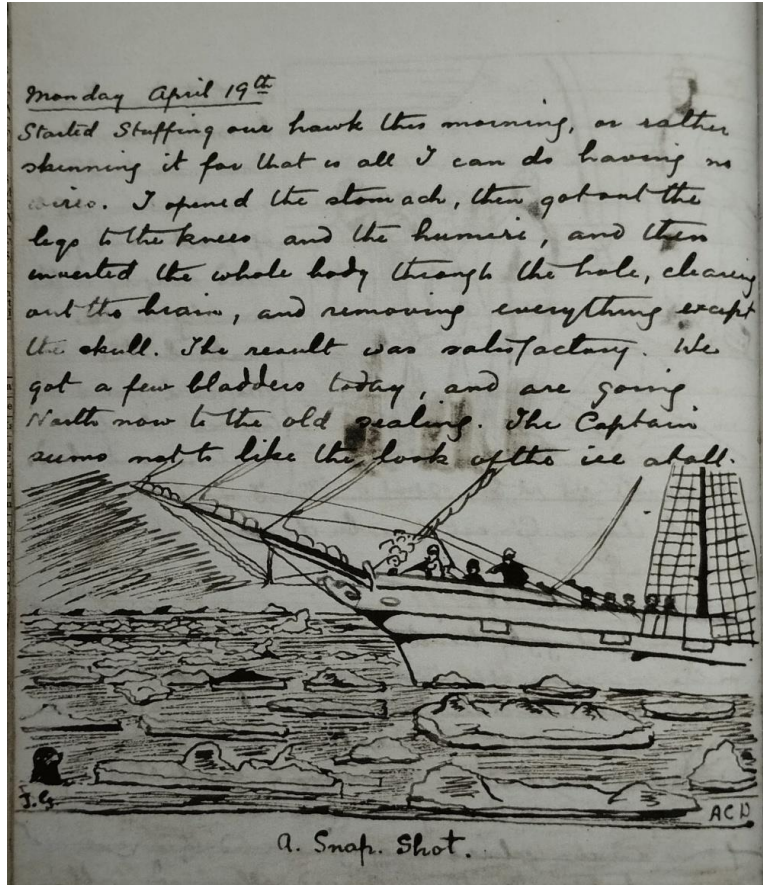 Monday April 19th
Started Stuffing our hawk this morning, or rather
skinning it for that is all I can do having no
wires. I opened the stomach, then got out the
legs to the knees and the humeri, and then
inverted the whole body through the hole, clearing
out the brain, and removing everything except
the skull. The result was satisfactory. We
got a few bladders today, and are going
North now to the old sealing. The Captain
seems not to like the look of the ice at all.
J.G.
ACD
A. Snap. Shot.